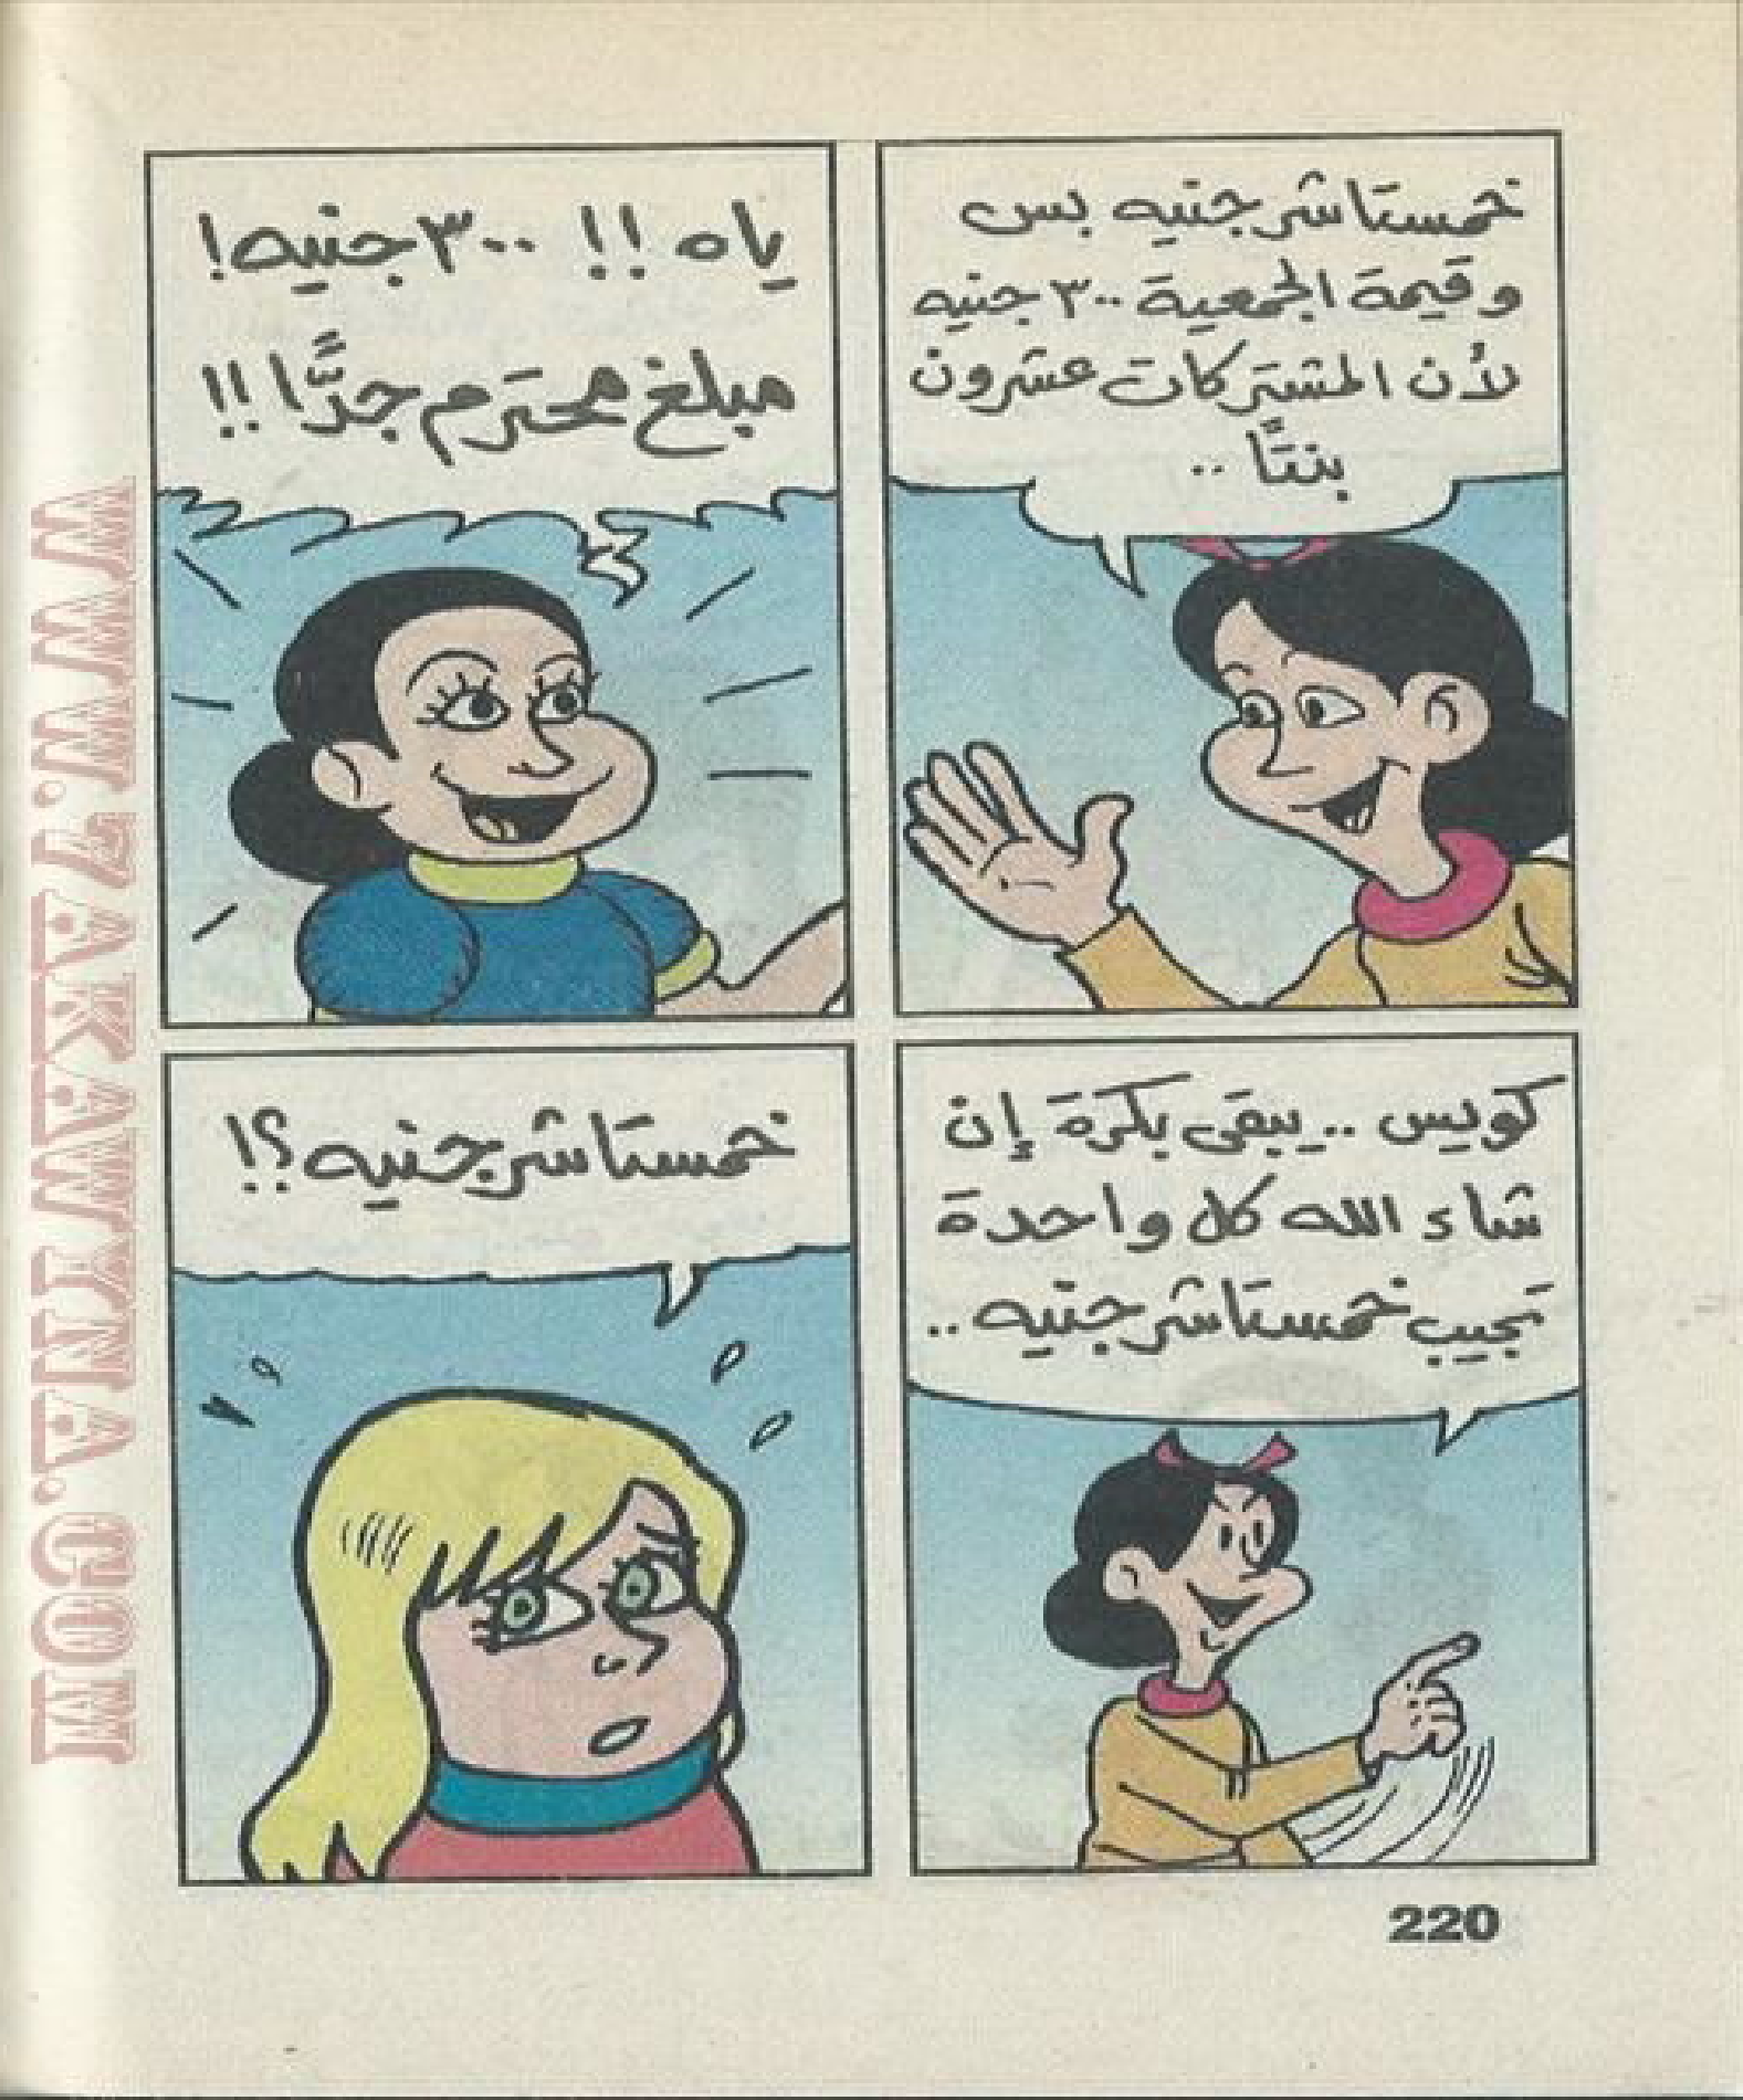 خمستاشر جنيه بس
وقيمة الجمعية ٣٠٠ جنيه
لأن المشتركات عشرون
بنتًا ..
ياه !! ٣٠٠ جنيه !
مبلغ محترم جدًّا !!
كويس .. يبقى بكرة إن
شاء الله كل واحدة
تجيب خمستاشر جنيه ..
خمستاشر جنيه ؟!
220
WWW.7AKAWINA.COM